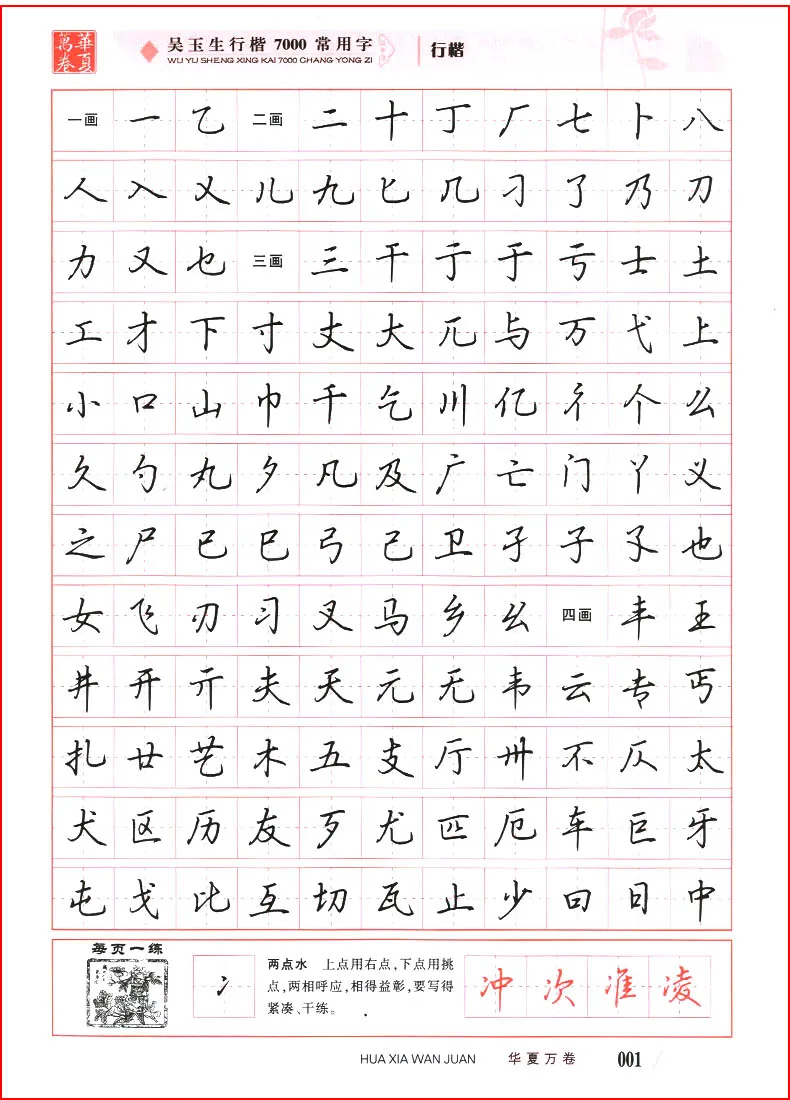 華夏萬卷
吴玉生行楷 7000 常用字
WU YU SHENG XING KAI 7000 CHANG YONG ZI
行楷
一画 一 乙 二画 二 十 丁 厂 七 卜 八
人 入 乂 儿 九 匕 几 刁 了 乃 刀
力 又 乜 三画 三 干 亍 于 亏 士 土
工 才 下 寸 丈 大 兀 与 万 弋 上
小 口 山 巾 千 乞 川 亿 彳 个 么
久 勺 丸 夕 凡 及 广 亡 门 丫 义
之 尸 已 巳 弓 己 卫 孑 子 孓 也
女 飞 刃 习 叉 马 乡 幺 四画 丰 王
井 开 亓 夫 天 元 无 韦 云 专 丐
扎 廿 艺 木 五 支 厅 卅 不 仄 太
犬 区 历 友 歹 尤 匹 厄 车 巨 牙
屯 戈 比 互 切 瓦 止 少 曰 日 中
每页一练
冫
两点水 上点用右点,下点用挑
点,两相呼应,相得益彰,要写得
紧凑、干练。
冲 次 准 凌
HUA XIA WAN JUAN 华夏万卷 001